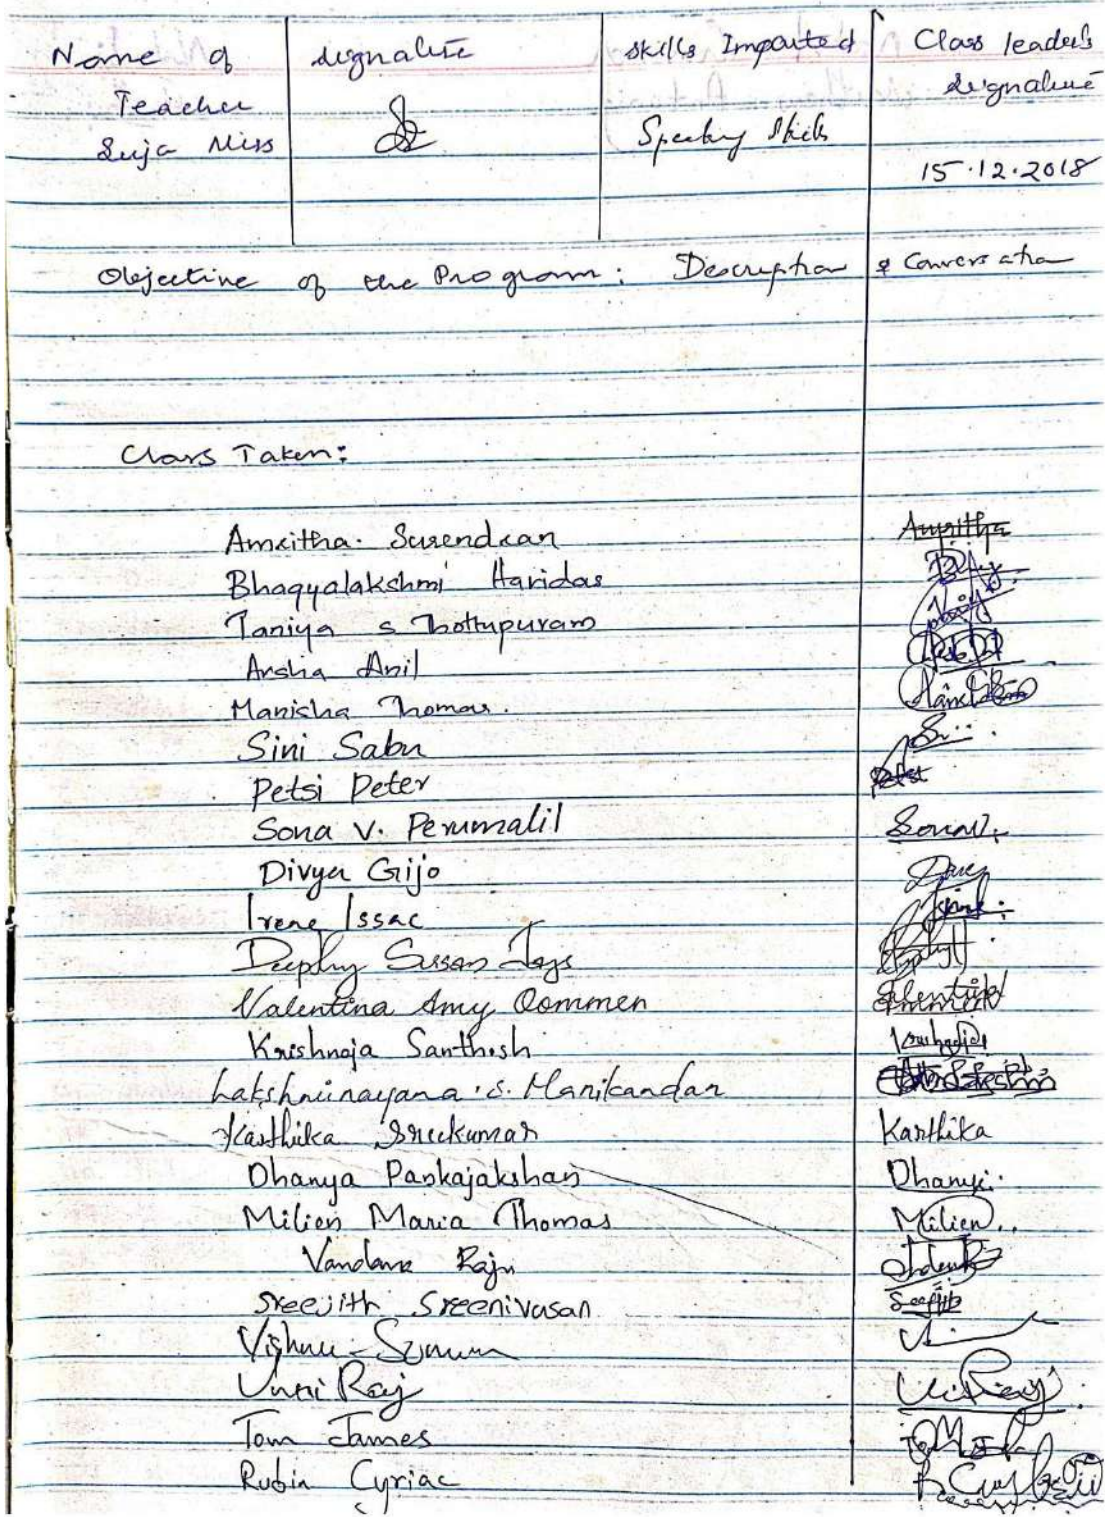 Name of Teacher Suja Miss
signature
skills Imparted
Speaking Skills
Class leader's signature
15.12.2018
Objective of the Program: Description & Conversation
Class Taken:
Amritha. Surendran
Bhagyalakshmi Haridas
Taniya S Thottupuram
Arsha Anil
Manisha Thomas.
Sini Sabu
Petsi Peter
Sona V. Perumalil Sona V.
Divya Gijo
Irene Issac
Susan
Valentina Amy Oommen
Krishnaja Santhosh
Lakshminarayana . S. Manikandan
Karthika Sreekumar Karthika
Dhanya Pankajakshan Dhanya
Milien Maria Thomas Milien
Vandana Raju
Sreejith Sreenivasan
Vishnu
Unni Raj
Tom James
Rubin Cyriac